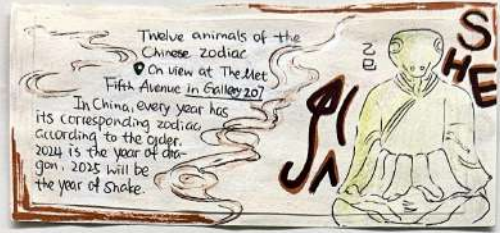 Twelve animals of the
Chinese zodiac
On view at The Met
Fifth Avenue in Gallery 207
In China, every year has
its corresponding zodiac
according to the order.
2024 is the year of dra-
gon, 2025 will be
the year of snake.
乙
巳
S
HE